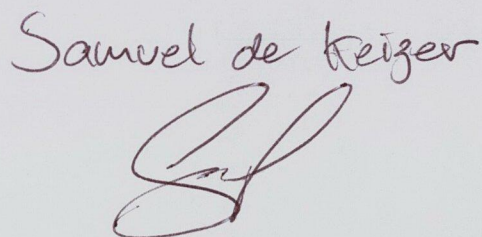 Samuel de Keizer